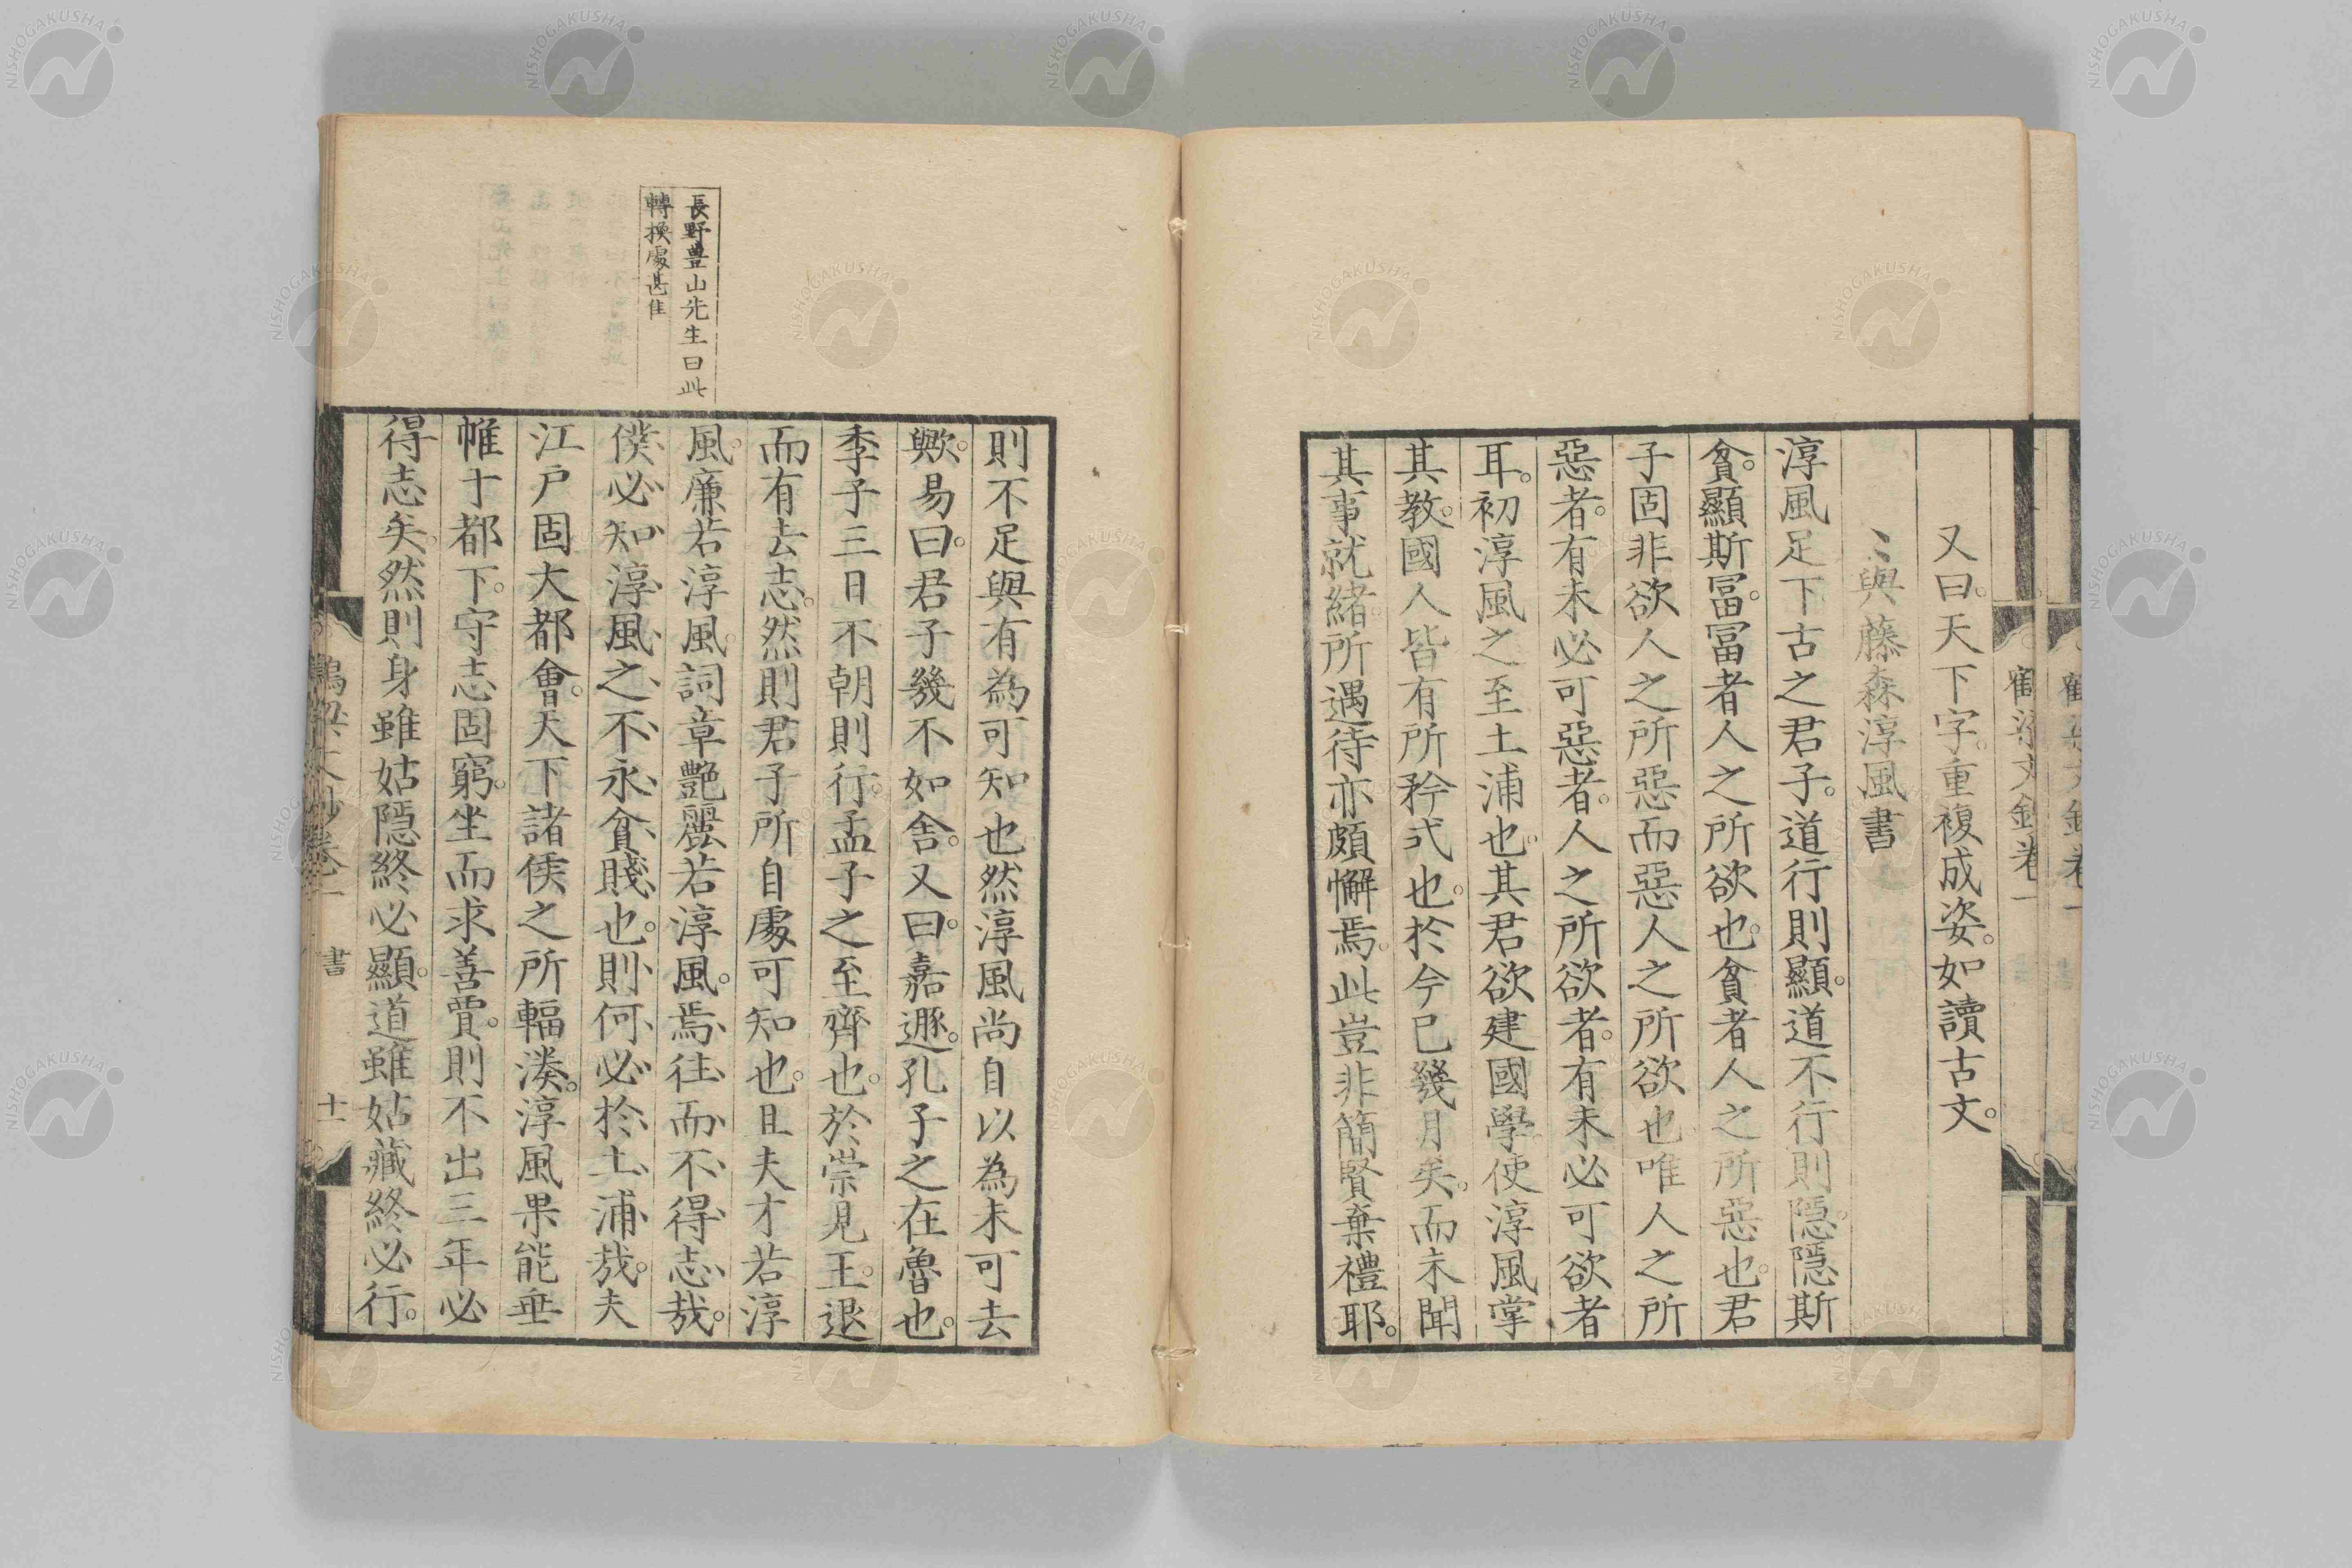 又曰。天下字。重複成姿。如讀古文。
與藤森淳風書
淳風足下古之君子。道行則顯。道不行則隱。隱斯
貧。顯斯冨。冨者人之所欲也。貧者人之所惡也。君
子固非欲人之所惡而惡人之所欲也唯人之所
惡者。有未必可惡者。人之所欲者。有未必可欲者
耳。初淳風之至土浦也。其君欲建國學。使淳風掌
其教。國人皆有所矜式也。於今已幾月矣。而未聞
其事就緒。所遇待亦頗懈焉。此豈非簡賢棄禮耶。
則不足與有為可知也然淳風尚自以為未可去
歟。易曰。君子幾不如舍。又曰。嘉遯。孔子之在魯也。
季子三日不朝則行。孟子之至齊也。於崇見王。退
而有去志。然則君子所自處可知也。且夫才若淳
風。廉若淳風。詞章艷麗若淳風。焉往而不得志哉。
僕必知淳風之不永貧賤也。則何必於土浦哉。夫
江戸固大都會。天下諸侯之所輻湊。淳風果能垂
帷于都下。守志固窮。坐而求善賈。則不出三年必
得志矣。然則身雖姑隱終必顯。道雖姑藏終必行。
長野豊山先生曰此
轉換處甚佳
書
十一
NISHOGAKUSHA